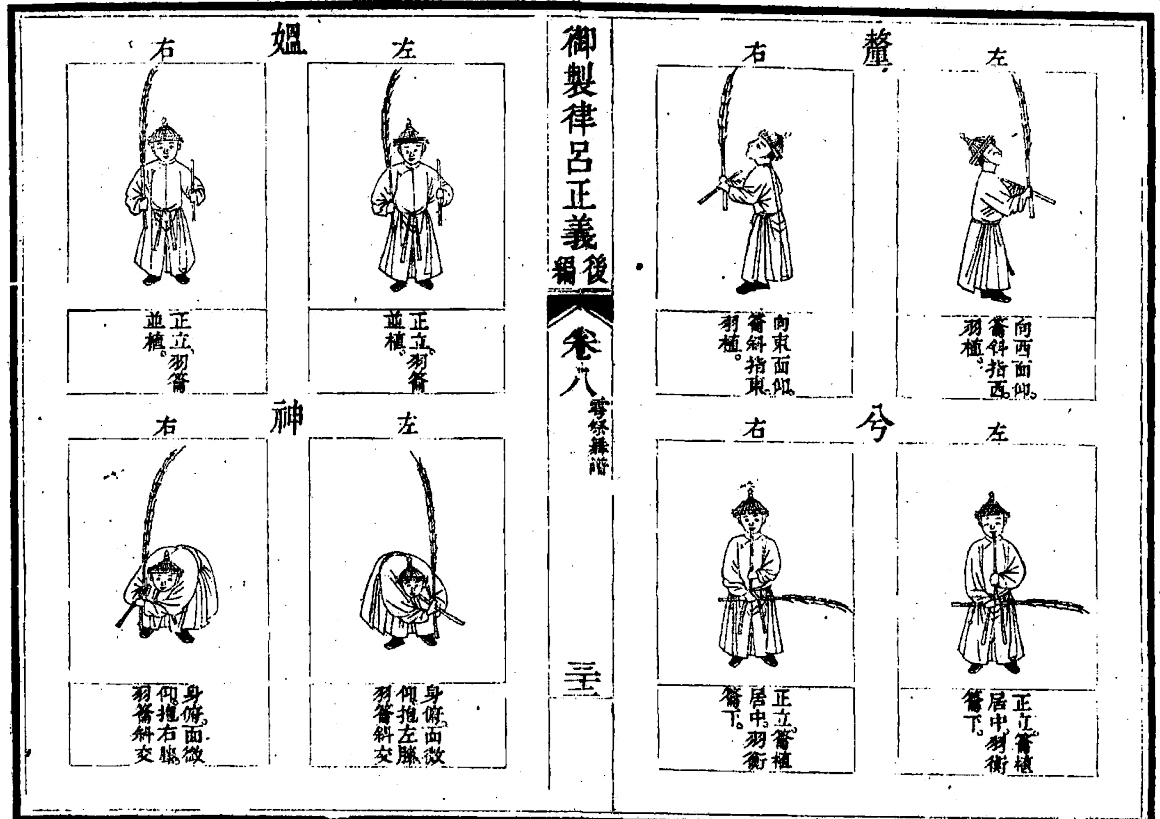 釐
左
向西面仰。
籥斜指西。
羽植。
右
向東面仰。
籥斜指東。
羽植。
兮
左
正立。籥植
居中。羽衡
籥下。
右
正立。籥植
居中。羽衡
籥下。
御製律呂正義後編
卷八
雩祭舞譜
三十二
媼
左
正立。羽籥
並植。
右
正立。羽籥
並植。
神
左
身俯。面微
仰。抱左膝。
羽籥斜交
右
身俯。面微
仰。抱右膝。
羽籥斜交